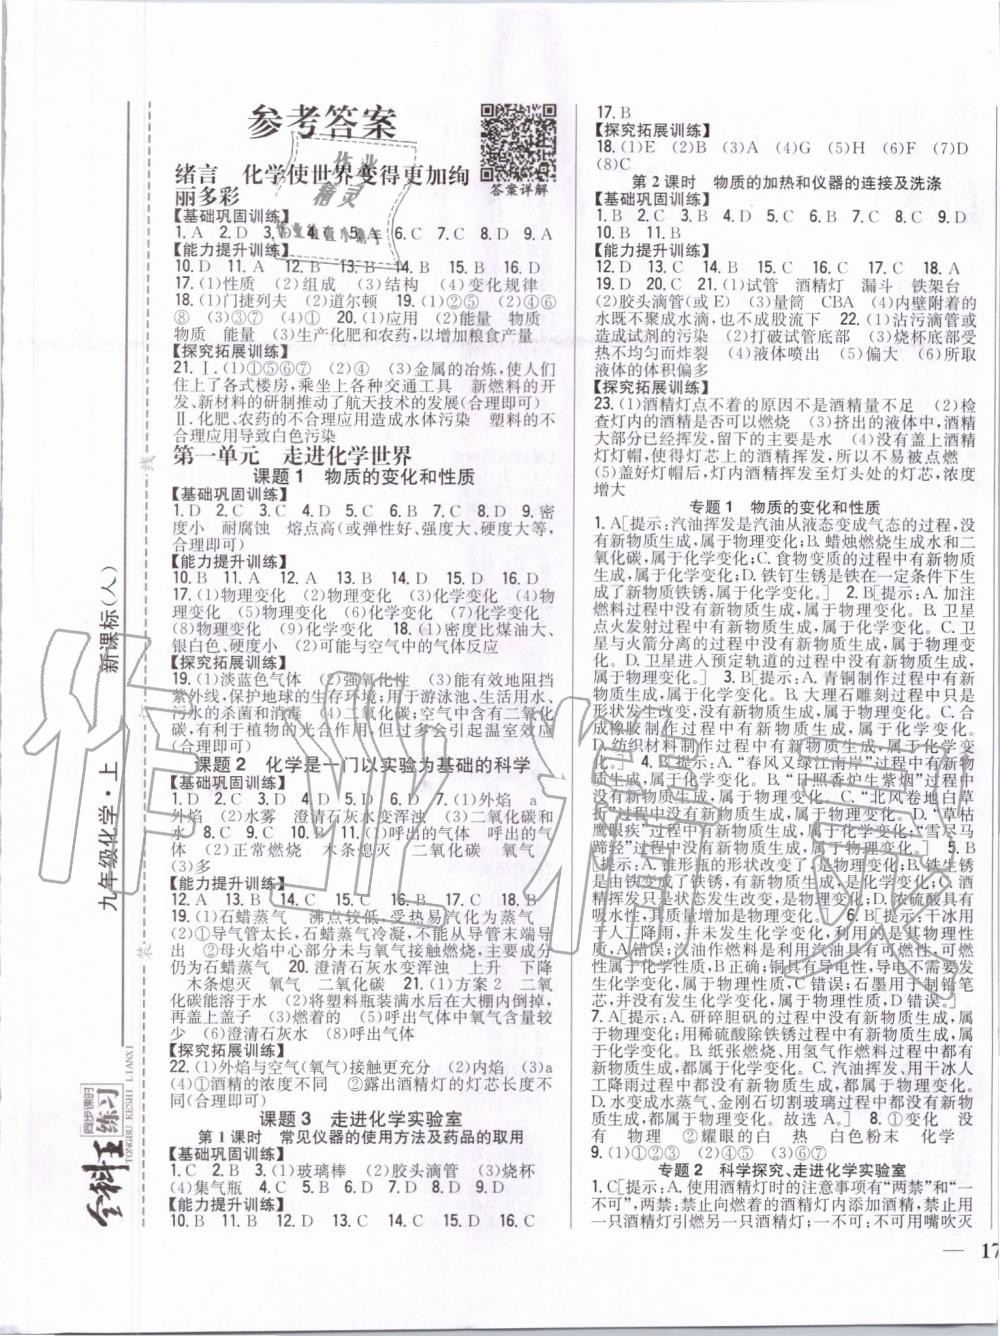 参考答案
答案详解
绪言　化学使世界变得更加绚
丽多彩
【基础巩固训练】
1. A　2. D　3. D　4. C　5. A　6. C　7. C　8. D　9. A
【能力提升训练】
10. D　11. A　12. B　13. B　14. B　15. B　16. D
17. (1)性质　(2)组成　(3)结构　(4)变化规律
18. (1)门捷列夫　(2)道尔顿　19. (1)②⑤　(2)④⑥
⑧　(3)③⑦　(4)①　20. (1)应用　(2)能量　物质
物质　能量　(3)生产化肥和农药,以增加粮食产量
【探究拓展训练】
21. Ⅰ. (1)①⑤⑥⑦　(2)④　(3)金属的冶炼,使人们
住上了各式楼房,乘坐上各种交通工具　新燃料的开
发、新材料的研制推动了航天技术的发展(合理即可)
Ⅱ. 化肥、农药的不合理应用造成水体污染　塑料的不
合理应用导致白色污染
第一单元　走进化学世界
课题1　物质的变化和性质
【基础巩固训练】
1. D　2. C　3. C　4. D　5. C　6. B　7. D　8. D　9. 密
度小　耐腐蚀　熔点高(或弹性好、强度大、硬度大等,
合理即可)
【能力提升训练】
10. B　11. B　12. C　13. C　14. A　15. D　16. D
17. (1)物理变化　(2)物理变化　(3)化学变化　(4)物
理变化　(5)物理变化　(6)化学变化　(7)化学变化
(8)物理变化　(9)化学变化　18. (1)密度比煤油大、
银白色、硬度小　(2)可能与空气中的气体反应
【探究拓展训练】
19. (1)淡蓝色气体　(2)强氧化性　(3)能有效地阻挡
紫外线,保护地球的生存环境;用于游泳池、生活用水、
污水的杀菌和消毒　(4)二氧化碳;空气中含有二氧化
碳,有利于植物的光合作用,但过多会引起温室效应
(合理即可)
课题2　化学是一门以实验为基础的科学
【基础巩固训练】
1. D　2. C　3. D　4. D　5. D　6. D　7. (1)外焰　a
外焰　(2)水雾　澄清石灰水变浑浊　(3)二氧化碳和
水　8. C　9. C　10. B　11. (1)呼出的气体　呼出的气
体　(2)正常燃烧　木条熄灭　二氧化碳　氧气
(3)多
【能力提升训练】
12. A　13. C　14. C　15. A　16. B　17. C　18. B
19. (1)石蜡蒸气　沸点较低,受热易汽化为蒸气
(2)①导气管太长,石蜡蒸气冷凝,不能从导管末端导
出　②母火焰中心部分未与氧气接触燃烧,主要成分
仍为石蜡蒸气　20. 澄清石灰水变浑浊　上升　下降
木条熄灭　氧气　二氧化碳　21. (1)方案2　二氧
化碳能溶于水　(2)将塑料瓶装满水后在大棚内倒掉,
再盖上盖子　(3)燃着的　(5)呼出气体中氧气含量较
少　(6)澄清石灰水　(8)呼出气体
【探究拓展训练】
22. (1)外焰与空气(氧气)接触更充分　(2)内焰　(3)a
(4)①酒精的浓度不同　②露出酒精灯的灯芯长度不
同(合理即可)
课题3　走进化学实验室
第1课时　常见仪器的使用方法及药品的取用
【基础巩固训练】
1. C　2. B　3. (1)玻璃棒　(2)胶头滴管　(3)烧杯
(4)集气瓶　4. C　5. B　6. D　7. B　8. D　9. D
【能力提升训练】
10. B　11. B　12. D　13. C　14. D　15. D　16. C
17. B
【探究拓展训练】
18. (1)E　(2)B　(3)A　(4)G　(5)H　(6)F　(7)D
(8)C
第2课时　物质的加热和仪器的连接及洗涤
1. B　2. C　3. B　4. D　5. D　6. B　7. C　8. C　9. D
10. B　11. B
【能力提升训练】
12. D　13. C　14. B　15. C　16. C　17. C　18. A
19. D　20. C　21. (1)试管　酒精灯　漏斗　铁架台
(2)胶头滴管(或E)　(3)量筒　CBA　(4)内壁附着的
水既不聚成水滴,也不成股流下　22. (1)沾污滴管或
造成试剂的污染　(2)打破试管底部　(3)烧杯底部受
热不均匀而炸裂　(4)液体喷出　(5)偏大　(6)所取
液体的体积偏多
【探究拓展训练】
23. (1)酒精灯点不着的原因不是酒精量不足　(2)检
查灯内的酒精是否可以燃烧　(3)挤出的液体中,酒精
大部分已经挥发,留下的主要是水　(4)没有盖上酒精
灯灯帽,使得灯芯上的酒精挥发,所以不易被点燃
(5)盖好灯帽后,灯内酒精挥发至灯头处的灯芯,浓度
增大
专题1　物质的变化和性质
1. A[提示:汽油挥发是汽油从液态变成气态的过程,没
有新物质生成,属于物理变化;B. 蜡烛燃烧生成水和二
氧化碳,属于化学变化;C. 食物变质的过程中有新物质
生成,属于化学变化;D. 铁钉生锈是铁在一定条件下生
成了新物质铁锈,属于化学变化。]　2. B[提示:A. 加注
燃料过程中没有新物质生成,属于物理变化。B. 卫星
点火发射过程中有新物质生成,属于化学变化。C. 卫
星与火箭分离的过程中没有新物质生成,属于物理变
化。D. 卫星进入预定轨道的过程中没有新物质生成,
属于物理变化。]　3. B[提示:A. 青铜制作过程中有新
物质生成,属于化学变化。B. 大理石雕刻过程中只是
形状发生改变,没有新物质生成,属于物理变化。C. 合
成橡胶制作过程中有新物质生成,属于化学变化。
D. 纺织材料制作过程中有新物质生成,属于化学变
化。]　4. B[提示:A. “春风又绿江南岸”过程中有新物
质生成,属于化学变化。B. “日照香炉生紫烟”过程中
没有新物质生成,属于物理变化。C. “北风卷地白草
折”过程中没有新物质生成,属于物理变化。D. “草枯
鹰眼疾”过程中有新物质生成,属于化学变化;“雪尽马
蹄轻”过程中没有新物质生成,属于物理变化。]　5. B
[提示:A. 锥形瓶的形状改变了,是物理变化。B. 铁生锈
是由铁变成了铁锈,有新物质生成,是化学变化。C. 酒
精挥发只是状态改变,是物理变化。D. 浓硫酸具有
吸水性,其质量增加是物理变化。　6. B[提示:干冰用
于人工降雨,并未发生化学变化,利用的是其物理性
质,A错误;汽油作燃料是利用汽油具有可燃性,可燃
性属于化学性质,B正确;铜具有导电性,导电不需要
发生化学变化就能表现出来,C错误;石墨用于制铅笔
芯,并没有发生化学变化,D错误。]
7. A[提示:A. 研碎胆矾的过程中没有新物质生成,属
于物理变化;用稀硫酸除铁锈过程中有新物质生成,属
于化学变化。B. 纸张燃烧、用氢气作燃料过程中都有
新物质生成,都属于化学变化。C. 汽油挥发、用干冰人
工降雨过程中都没有新物质生成,都属于物理变化。
D. 水变成水蒸气、金刚石切割玻璃过程中都没有新物
质生成,都属于物理变化。故选A。]　8. (1)①变化
没有　物理　②耀眼的白　热　白色粉末　化学
9. (1)①②③　(2)④⑤　(3)⑥⑦
专题2　科学探究、走进化学实验室
1. C[提示:A. 使用酒精灯时的注意事项有“两禁”和“一
不可”,两禁:禁止向燃着的酒精灯内添加酒精,禁止用
一只酒精灯引燃另一只酒精灯;一不可:不可用嘴吹灭
— 17
九年级化学·上　新课标(人)
装
线
全科王
同步课时
练习
TONGBU KESHI LIANXI
作业精灵
作业
精灵